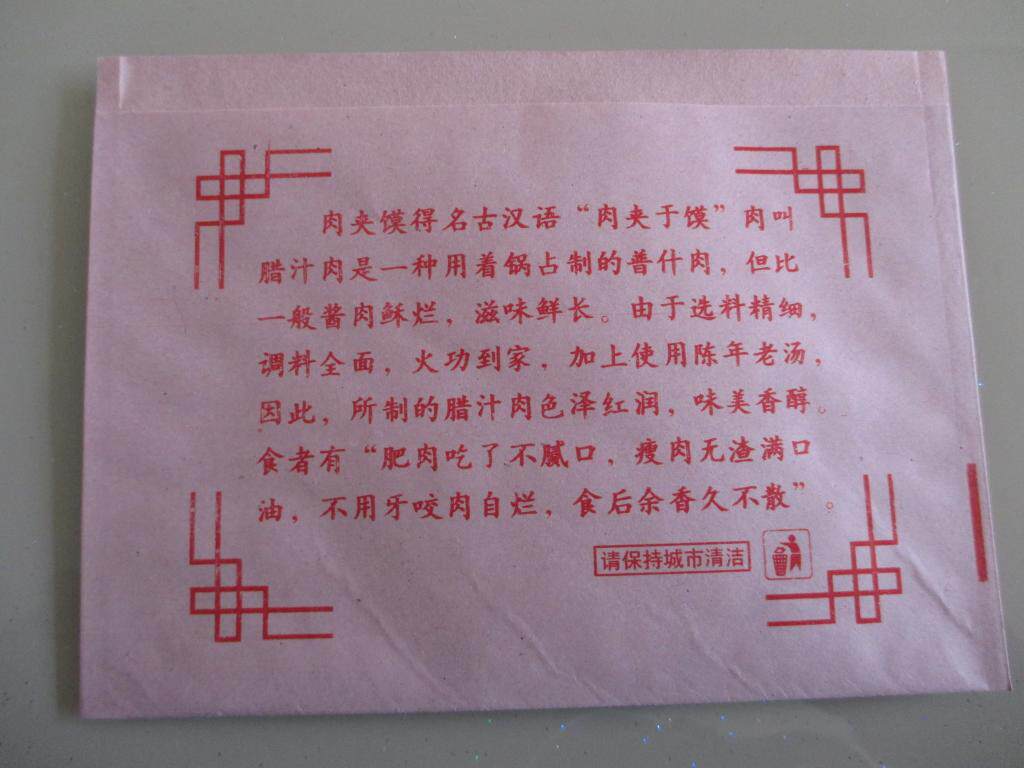 肉夹馍得名古汉语“肉夹于馍”肉叫
腊汁肉是一种用着锅占制的普什肉，但比
一般酱肉稣烂，滋味鲜长。由于选料精细，
调料全面，火功到家，加上使用陈年老汤，
因此，所制的腊汁肉色泽红润，味美香醇。
食者有“肥肉吃了不腻口，瘦肉无渣满口
油，不用牙咬肉自烂，食后余香久不散”。
请保持城市清洁